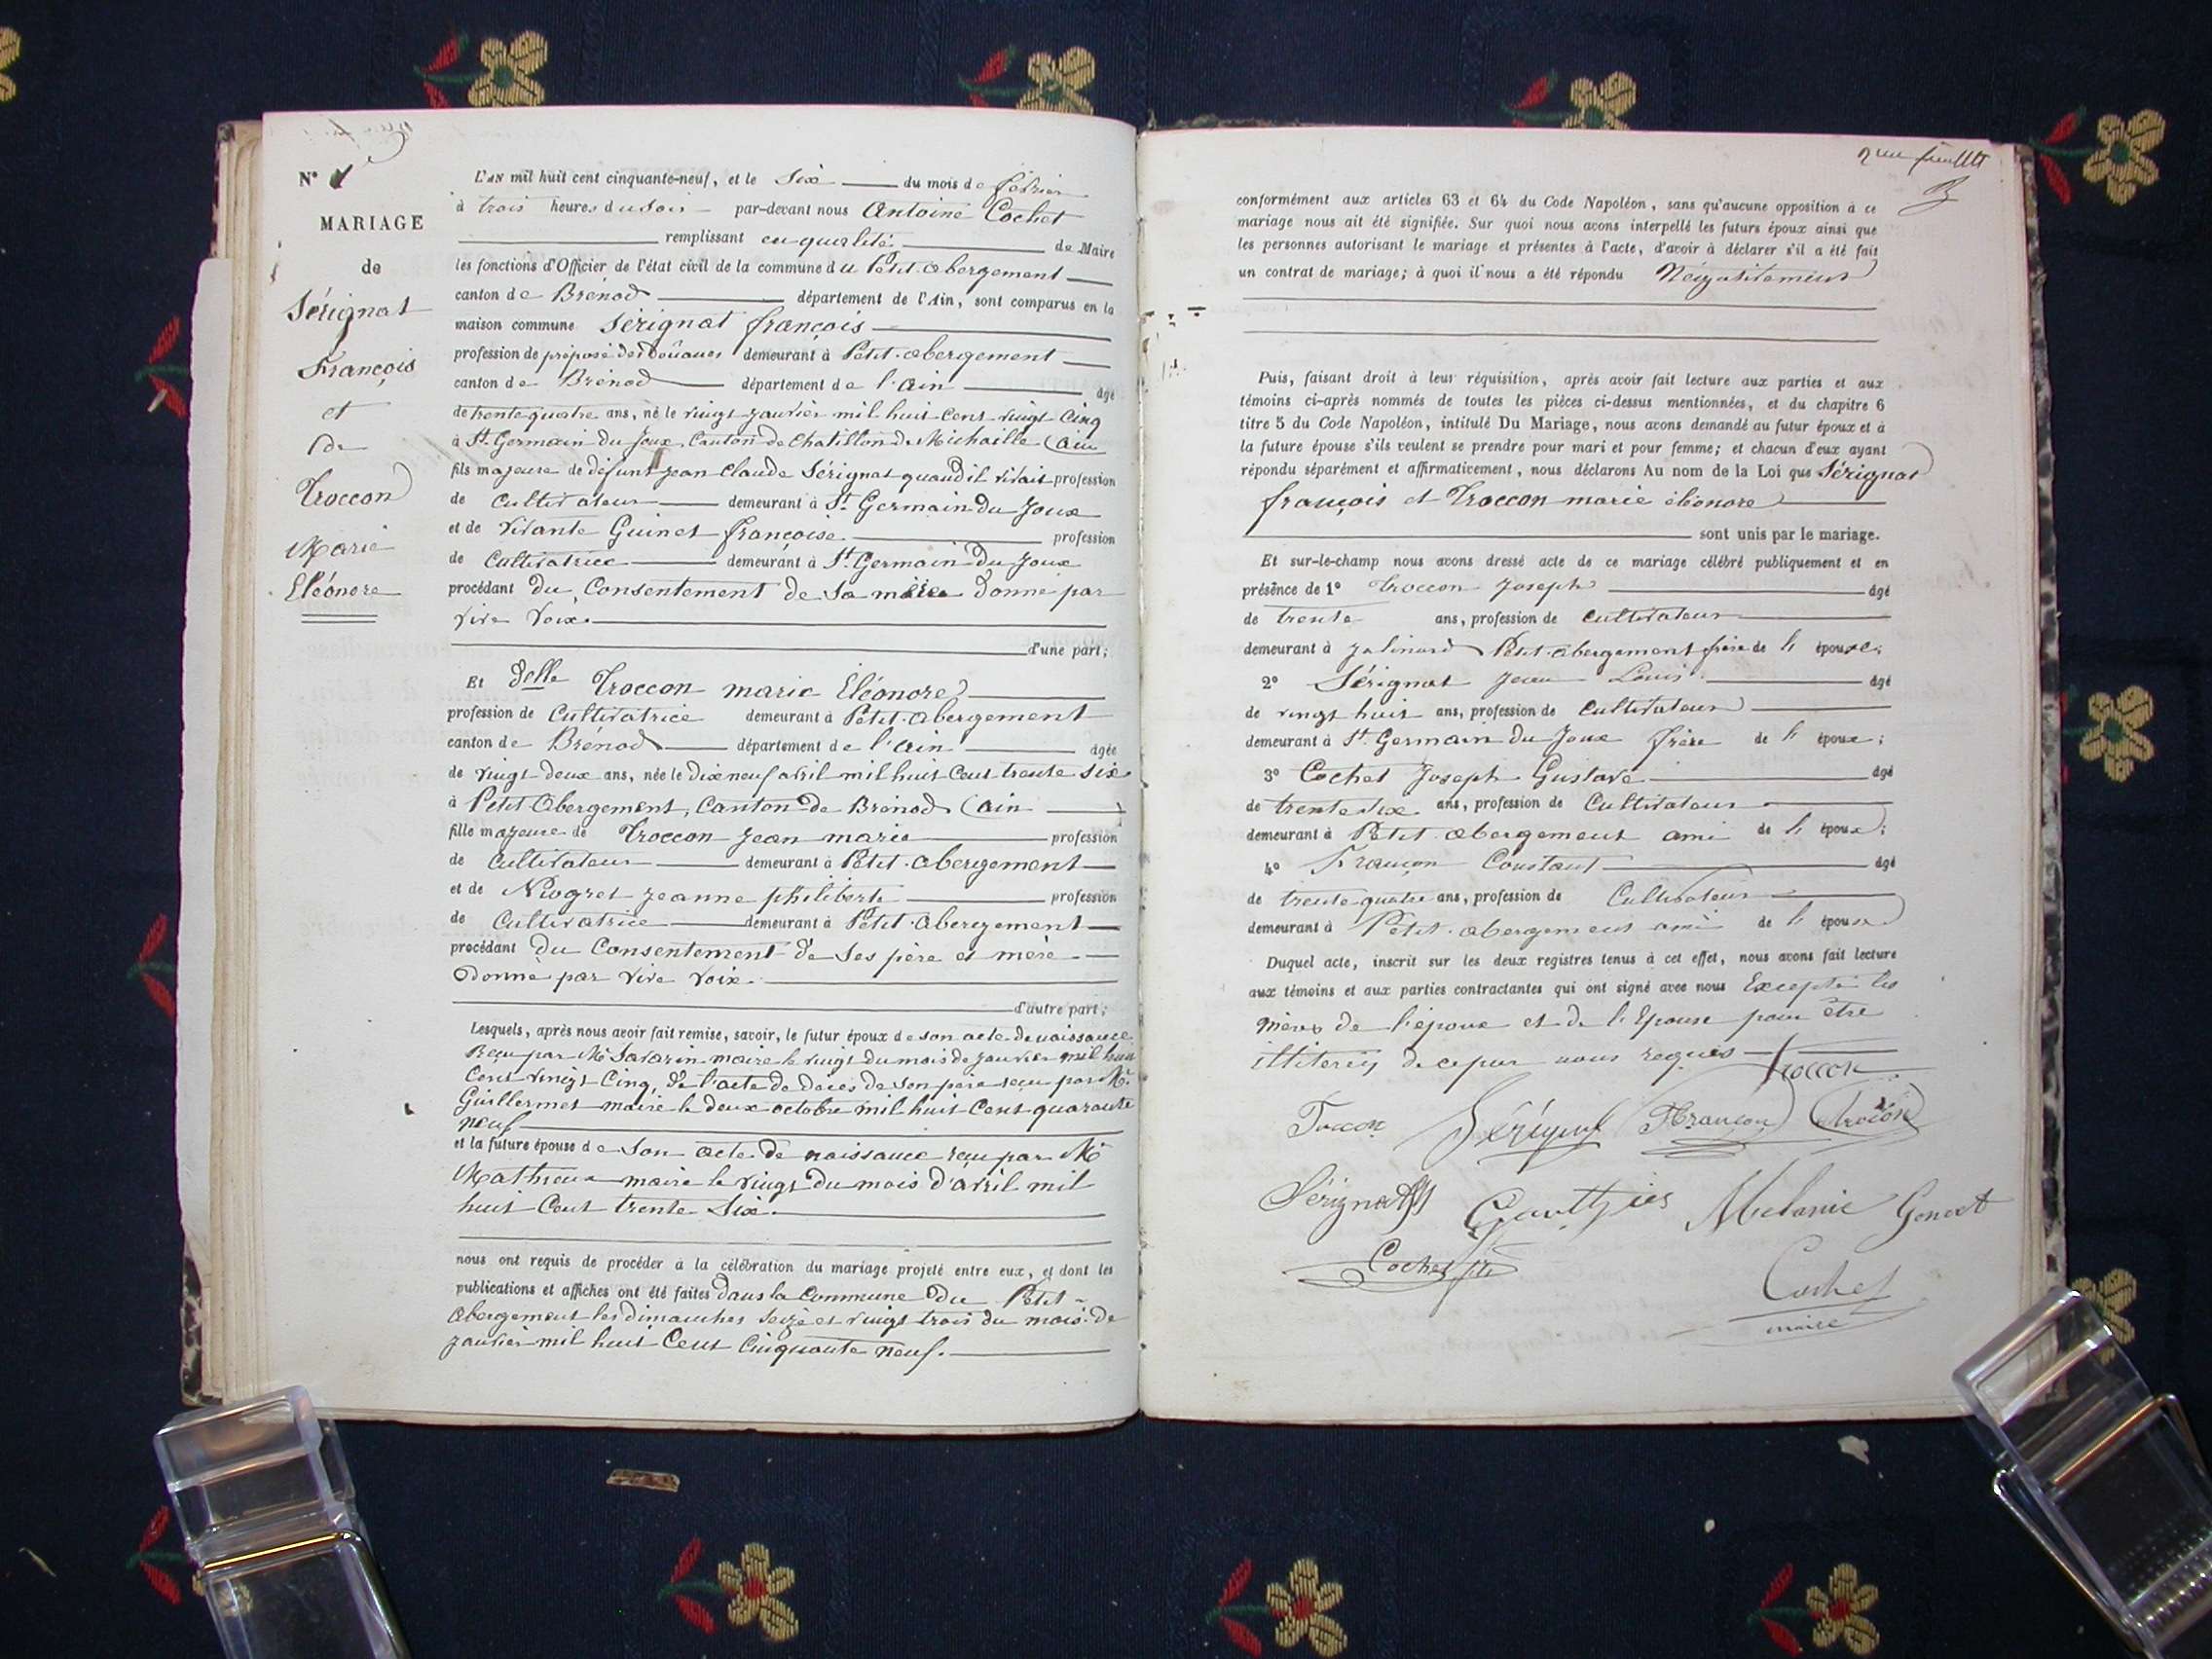 N° 1
MARIAGE
de
Sérignat
François
et
de
Troccon
Marie
Eléonore
L'AN mil huit cent cinquante-neuf, et le six du mois de février
à trois heures du soir par-devant nous Antoine Cochet
remplissant en qualité de Maire
les fonctions d'Officier de l'état civil de la commune du Petit-abergement
canton de Brénod département de l'Ain, sont comparus en la
maison commune Sérignat françois
profession de préposé des Douanes demeurant à Petit-abergement
canton de Brénod département de l'ain âgé
de trente quatre ans, né le vingt janvier mil huit cent vingt cinq
à St Germain du Joux, Canton de Chatillon de Michaille (ain
fils majeure de défunt jean claude Sérignat quand il vivait profession
de cultivateur demeurant à St Germain du Joux
et de vivante Guinet françoise profession
de cultivatrice demeurant à St Germain du Joux
procédant du Consentement de sa mère donné par
vive voix.
d'une part;
Et delle Troccon marie Eléonore
profession de cultivatrice demeurant à Petit-abergement
canton de Brénod département de l'ain âgée
de vingt deux ans, née le dix neuf avril mil huit cent trente six
à Petit Abergement, Canton de Brénod (ain )
fille majeure de Troccon jean marie profession
de cultivateur demeurant à Petit-abergement
et de Niogret jeanne philiberte profession
de cultivatrice demeurant à Petit-abergement
procédant du Consentement de ses père et mère
donné par vive voix.
d'autre part;
Lesquels, après nous avoir fait remise, savoir, le futur époux de son acte de naissance
Reçu par Mr Savarin maire le vingt du mois de janvier mil huit
cent vingt cinq, de l'acte de décès de son père reçu par Mr
Guillermet maire le deux octobre mil huit cent quarante
neuf
et la future épouse de son acte de naissance reçu par Mr
Mathieu maire le vingt du mois d'avril mil
huit cent trente six.
nous ont requis de procéder à la célébration du mariage projeté entre eux, et dont les
publications et affiches ont été faites dans la Commune du Petit-
abergement les dimanches seize et vingt trois du mois de
janvier mil huit Cent Cinquante neuf.
2me feuillet
conformément aux articles 63 et 64 du Code Napoléon, sans qu'aucune opposition à ce
mariage nous ait été signifiée. Sur quoi nous avons interpellé les futurs époux ainsi que
les personnes autorisant le mariage et présentes à l'acte, d'avoir à déclarer s'il a été fait
un contrat de mariage; à quoi il nous a été répondu Négativement
Puis, faisant droit à leur réquisition, après avoir fait lecture aux parties et aux
témoins ci-après nommés de toutes les pièces ci-dessus mentionnées, et du chapitre 6
titre 5 du Code Napoléon, intitulé Du Mariage, nous avons demandé au futur époux et à
la future épouse s'ils veulent se prendre pour mari et pour femme; et chacun d'eux ayant
répondu séparément et affirmativement, nous déclarons Au nom de la Loi que Sérignat
françois et Troccon marie éléonore
sont unis par le mariage.
Et sur-le-champ nous avons dressé acte de ce mariage célébré publiquement et en
présence de 1° Troccon Joseph âgé
de trente ans, profession de cultivateur
demeurant à Jalinard Petit-abergement frère de l' épouse;
2° Sérignat Jean Louis âgé
de vingt huit ans, profession de cultivateur
demeurant à St Germain du Joux frère de l' époux;
3° Cochet Joseph Gustave âgé
de trente six ans, profession de Cultivateur
demeurant à Petit abergement ami de l' époux;
4° Françon Constant âgé
de trente quatre ans, profession de Cultivateur
demeurant à Petit-abergement ami de l' époux
Duquel acte, inscrit sur les deux registres tenus à cet effet, nous avons fait lecture
aux témoins et aux parties contractantes qui ont signé avec nous Excepté les
mères de l'époux et de l'Epouse pour être
illiterés de ce par nous requis Troccon
Troccon Sérignat Françon Trocon
Sérignat Gauthier Mélanie Genod
Cochet fils
Cochet
maire